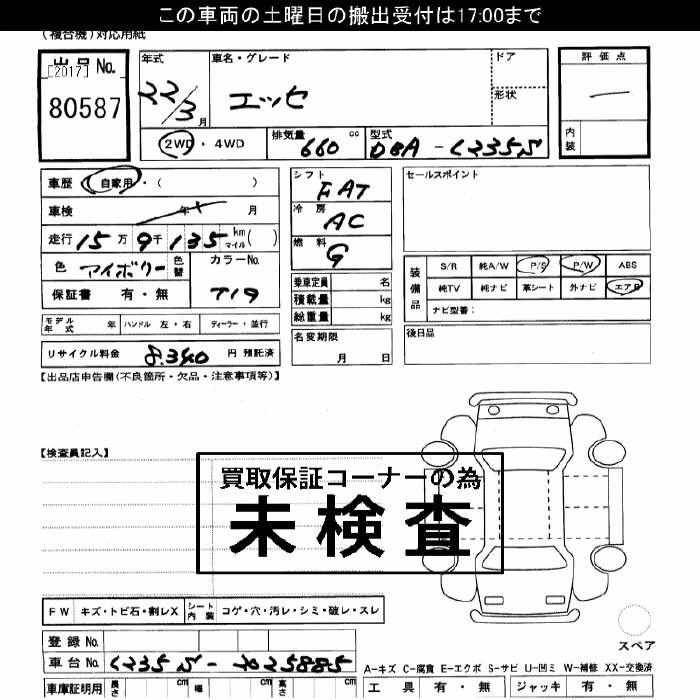 この車両の土曜日の搬出受付は17:00まで
(複合機)対応用紙
出品No.
[2017]
80587
年式
22/3月
車名・グレード
エッセ
ドア
形状
評価点
内装
2WD・4WD
排気量 660 cc
型式 DBA-L235S
車歴 自家用・( )
車検 年 月
走行 15万9千135 km マイル( )
色 アイボリー
色替
カラーNo. T19
保証書 有・無
シフト FAT
冷房 AC
燃料 G
乗車定員 名
積載量 kg
総重量 kg
セールスポイント
装備品
S/R 純A/W P/S P/W ABS
純TV 純ナビ 革シート 外ナビ エアB
ナビ型番:
モデル年式 年 ハンドル 左・右 ディーラー・並行
名変期限 月 日
後日品
リサイクル料金 8,340 円 預託済
【出品店申告欄(不良箇所・欠品・注意事項等)】
【検査員記入】
買取保証コーナーの為
未検査
FW キズ・トビ石・割レX シート内装 コゲ・穴・汚レ・シミ・破レ・スレ
スペア
登録No.
車台No. L235S-2025885
A-キズ C-腐食 E-エクボ S-サビ U-凹ミ W-補修 XX-交換済
車庫証明用 長さ cm 幅 cm 高さ cm
工具 有・無 ジャッキ 有・無